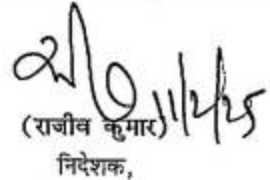 11/2/25
(राजीव कुमार)
निदेशक,